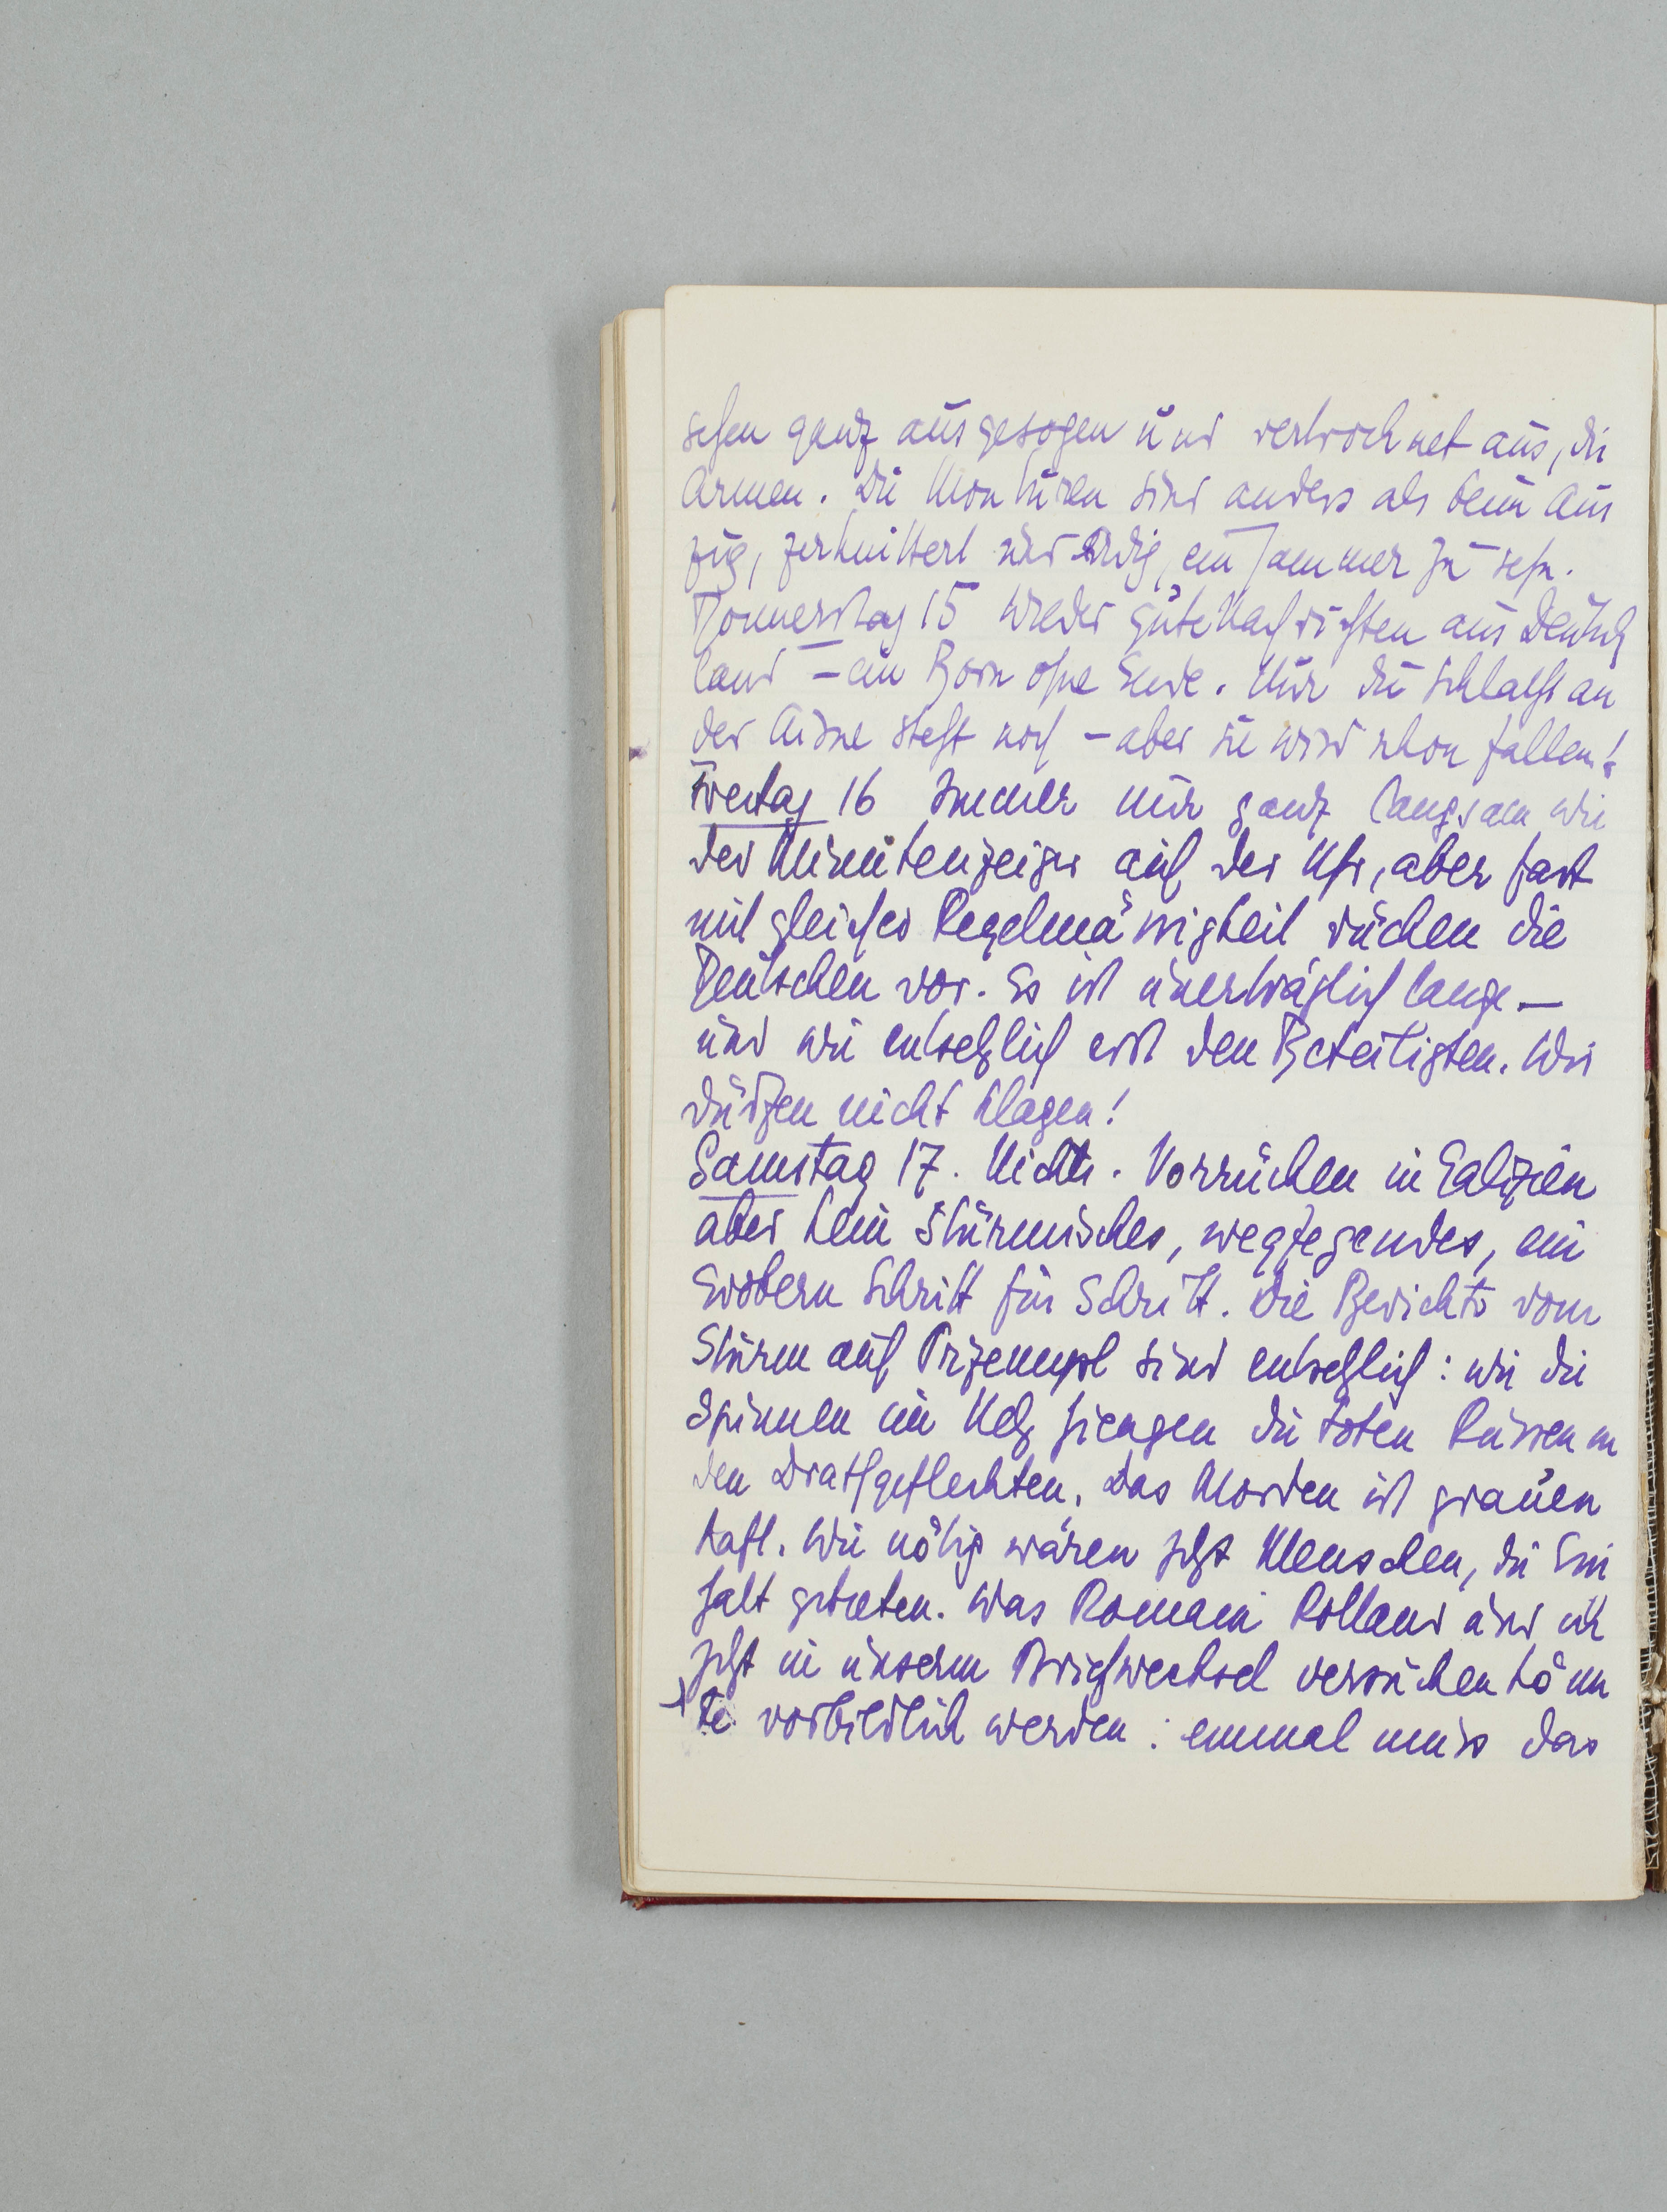 sehen ganz ausgesogen und vertrocknet aus, die
Armen. Die Monturen sind anders als beim Aus
zug, zerknittert und erdig, ein Jammer zu sehn.
Donnerstag 15 Wieder gute Nachrichten aus Deutsch
land – ein Born ohne Ende. Nur die Schlacht an
der Aisne steht noch – aber sie wird schon fallen!
Freitag 16 Immer nur ganz langsam wie
der Minutenzeiger auf der Uhr, aber fast
mit gleicher Regelmässigkeit rücken die
Deutschen vor. Es ist unerträglich lange –
und wie entsetzlich erst den Beteiligten. Wir
dürfen nicht klagen!
Samstag 17. Nichts. Vorrücken in Galizien
aber kein stürmisches, wegfegendes, ein
Erobern Schritt für Schritt. Die Berichte vom
Sturm auf Przemysl sind entsetzlich: wie die
Spinnen im Netz hiengen die toten Russen in
den Drathgeflechten. Das Morden ist grauen
haft. Wie nötig wären jetzt Menschen, die Ein
halt gebieten. Was Romain Rolland und ich
jetzt in unserm Briefwechsel versuchen könn
te vorbildlich werden: einmal muss das